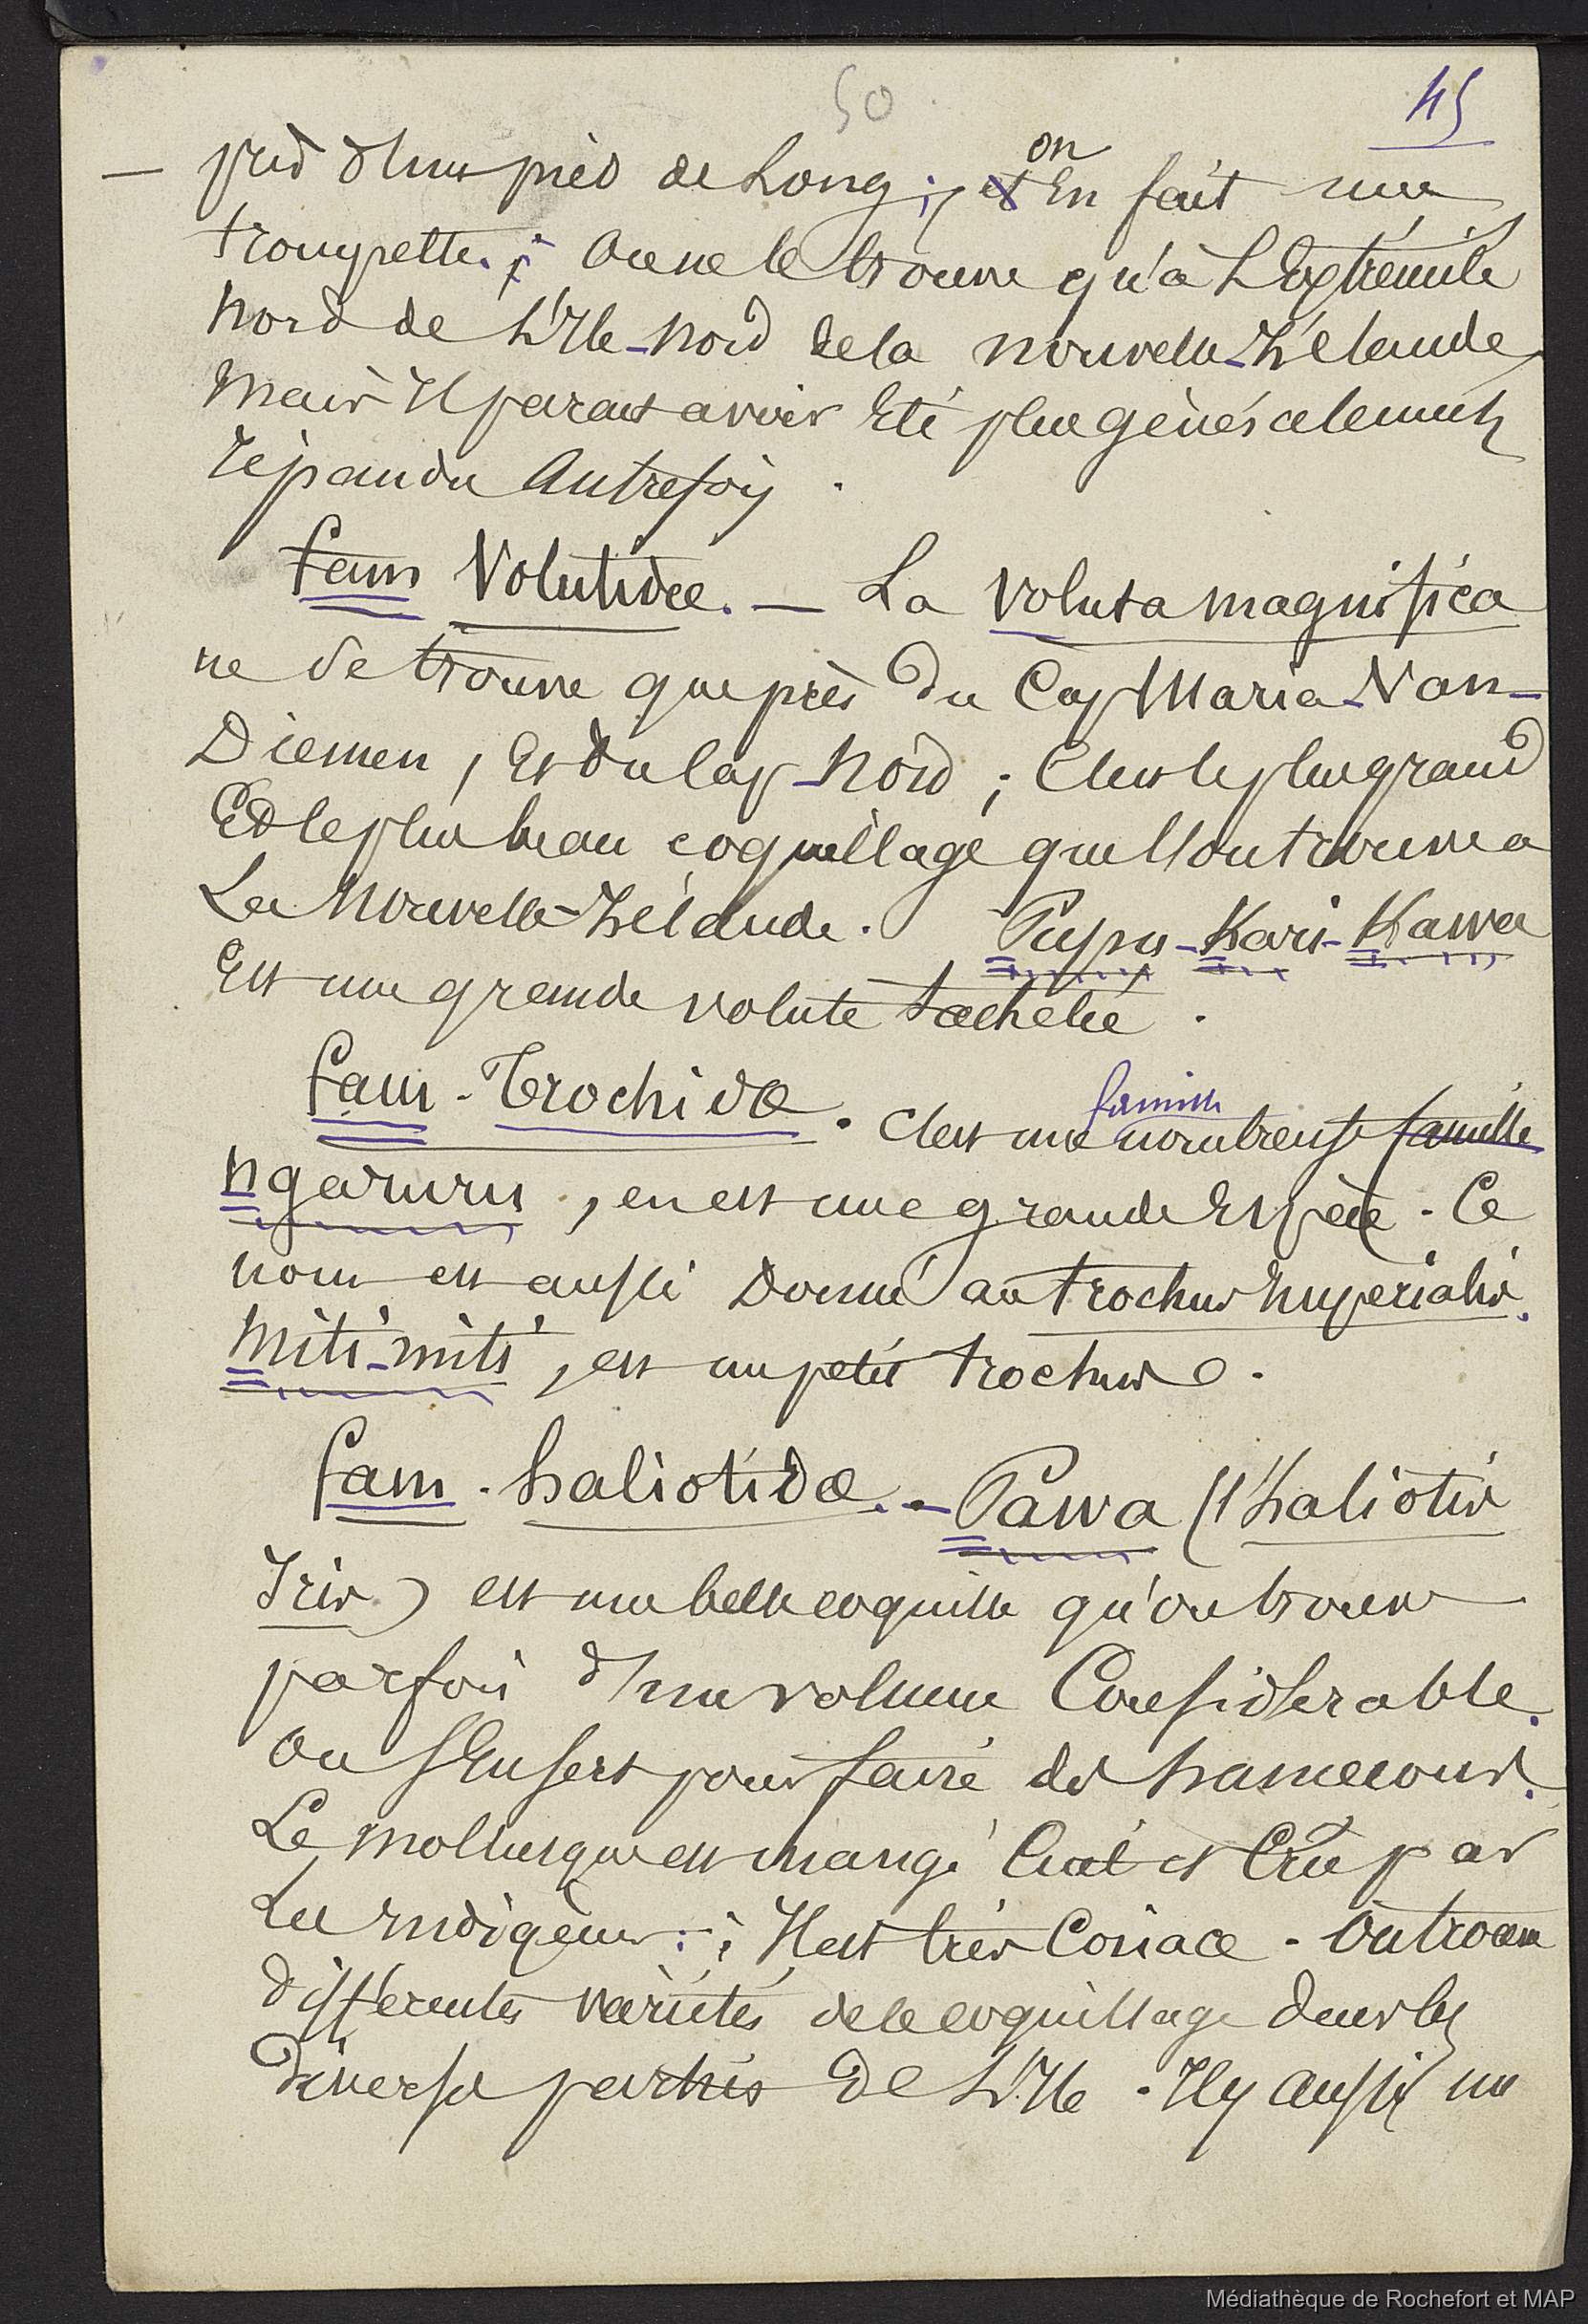 50
45
— près d'un pied de long ; et on en fait une
trompette. ; On ne le trouve qu'à L'Extrémité
Nord de L'Ile-Nord de la nouvelle-Zélande,
Mais Il parait avoir Eté plus généralement
répandu Autrefois .
Fam Volutidae. — La Voluta magnifica
ne se trouve que près du Cap Maria-Van-
Diemen, Et du Cap-Nord ; C'est le plus grand
Et le plus beau coquillage que l'on trouve a
La Nouvelle-Zélande. Pupu-Kari-Kawa
Est une grande volute tachetée .
Fam - Trochidae . C'est une famille nombreuse famille
ngaruru , en est une grande Espèce . Ce
nom est aussi Donné au trochus Imperialis.
Miti-miti , est un petit trochus .
Fam . haliotidae. - Pawa (l'haliotis
Iris) est une belle coquille qu'on trouve
parfois d'une volume Considérable.
On s'En sert pour faire des hameçons.
Le mollusque est mangé Cuit et Cru par
Les Indigènes ; Il est très Coriace . On trouve
différentes variétés de ce coquillage dans les
diverses parties de L'Ile . Il y aussi un
Médiathèque de Rochefort et MAP